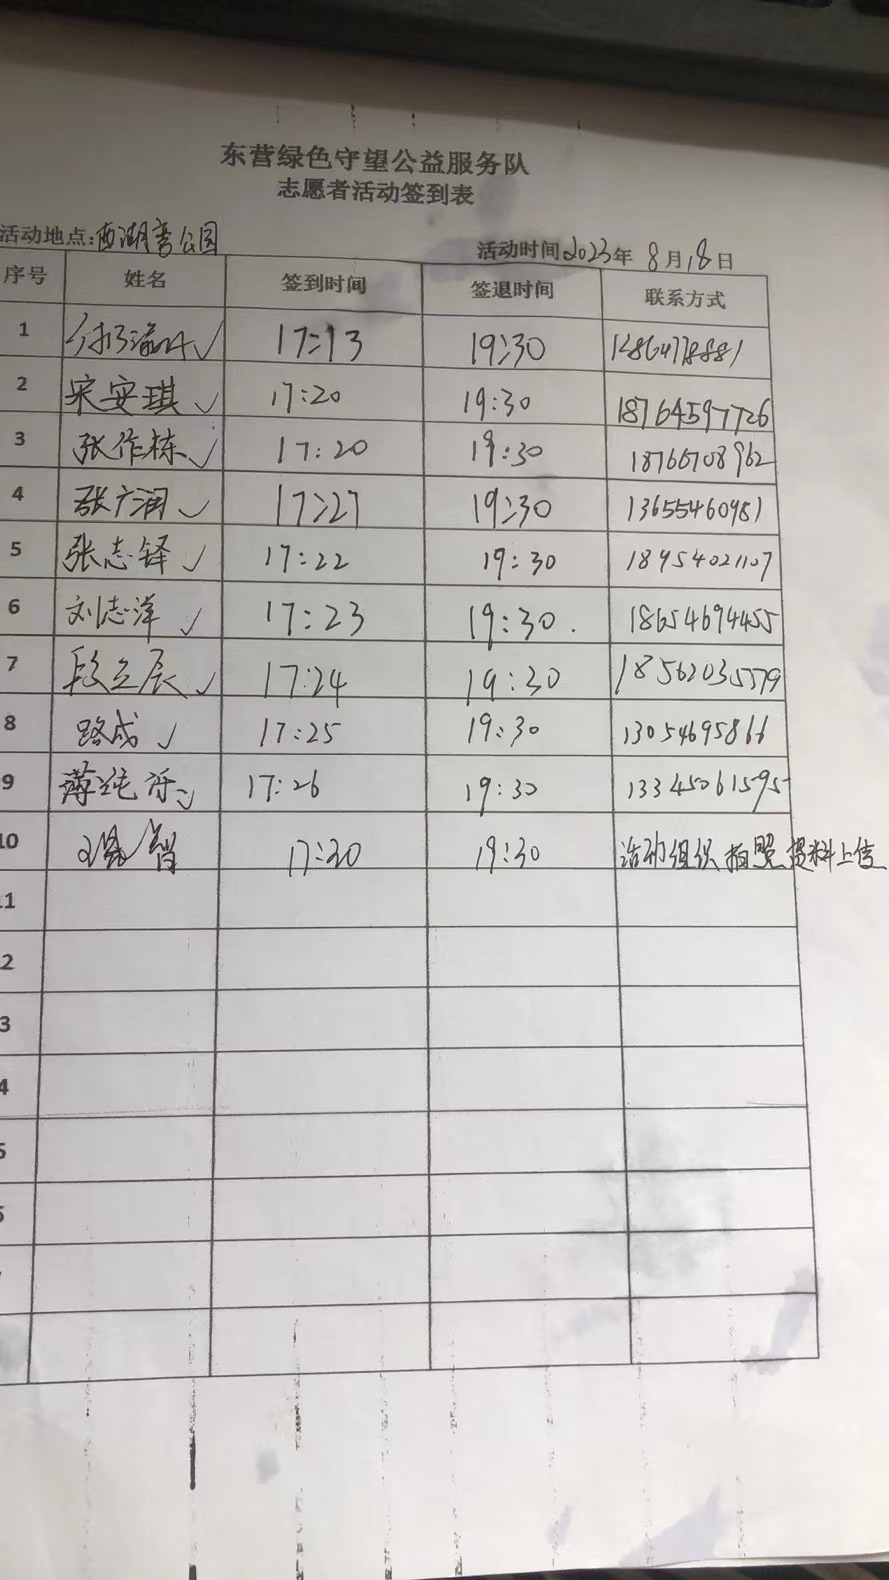 东营绿色守望公益服务队
志愿者活动签到表
活动地点:西湖湾公园 活动时间2023年8月18日
序号 姓名 签到时间 签退时间 联系方式
1 17:13 19:30
2 宋安琪 ✓ 17:20 19:30 18764597726
3 张作栋 ✓ 17:20 19:30 18766708962
4 张广润 ✓ 17:27 19:30 13655460981
5 张志铎 ✓ 17:22 19:30 18954021107
6 刘志洋 ✓ 17:23 19:30. 18654694455
7 段立辰 ✓ 17:24 19:30 18562035579
8 路成 ✓ 17:25 19:30 13054695866
9 薄纯 ✓ 17:26 19:30 13345061595
10 17:30 19:30 活动组织 拍照 资料上传
11
2
3
4
5